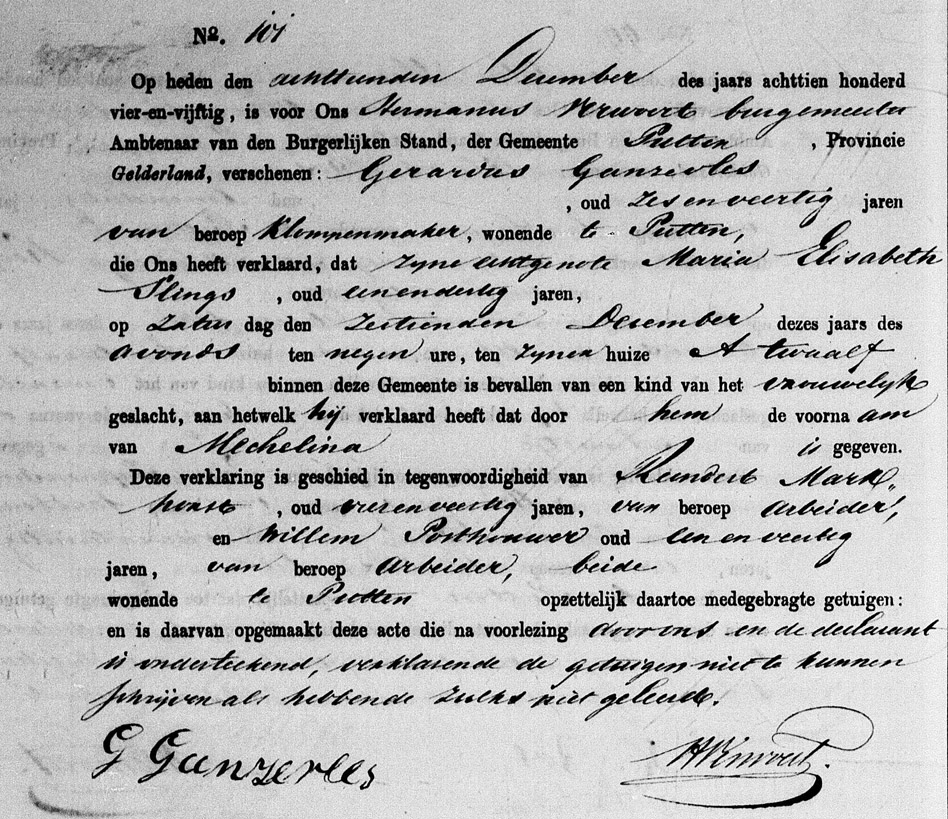 No. 101
Op heden den achttienden December des jaars achttien honderd
vier-en-vijftig, is voor Ons Hermanus Vervoort burgemeester
Ambtenaar van den Burgerlijken Stand, der Gemeente Putten, Provincie
Gelderland, verschenen: Gerardus Ganzevles
, oud zesenveertig jaren
van beroep Klompenmaker, wonende te Putten,
die Ons heeft verklaard, dat zyne echtgenote Maria Elisabeth
Slings, oud eenendertig jaren,
op Zaturdag den zestienden December dezes jaars des
avonds ten negen ure, ten zynen huize A twaalf
binnen deze Gemeente is bevallen van een kind van het vrouwelyk
geslacht, aan hetwelk hij verklaard heeft dat door hem de voornaam
van Mechelina is gegeven.
Deze verklaring is geschied in tegenwoordigheid van Reindert Mark„
horst, oud vierenveertig jaren, van beroep Arbeider,
en Willem Posthouwer oud eenenveertig
jaren, van beroep Arbeider, beide
wonende te Putten opzettelijk daartoe medegebragte getuigen:
en is daarvan opgemaakt deze acte die na voorlezing door ons en de declarant
is onderteekend, verklarende de getuigen niet te kunnen
schrijven als hebbende zulks niet geleerd.
G Ganzevles HVervoort.